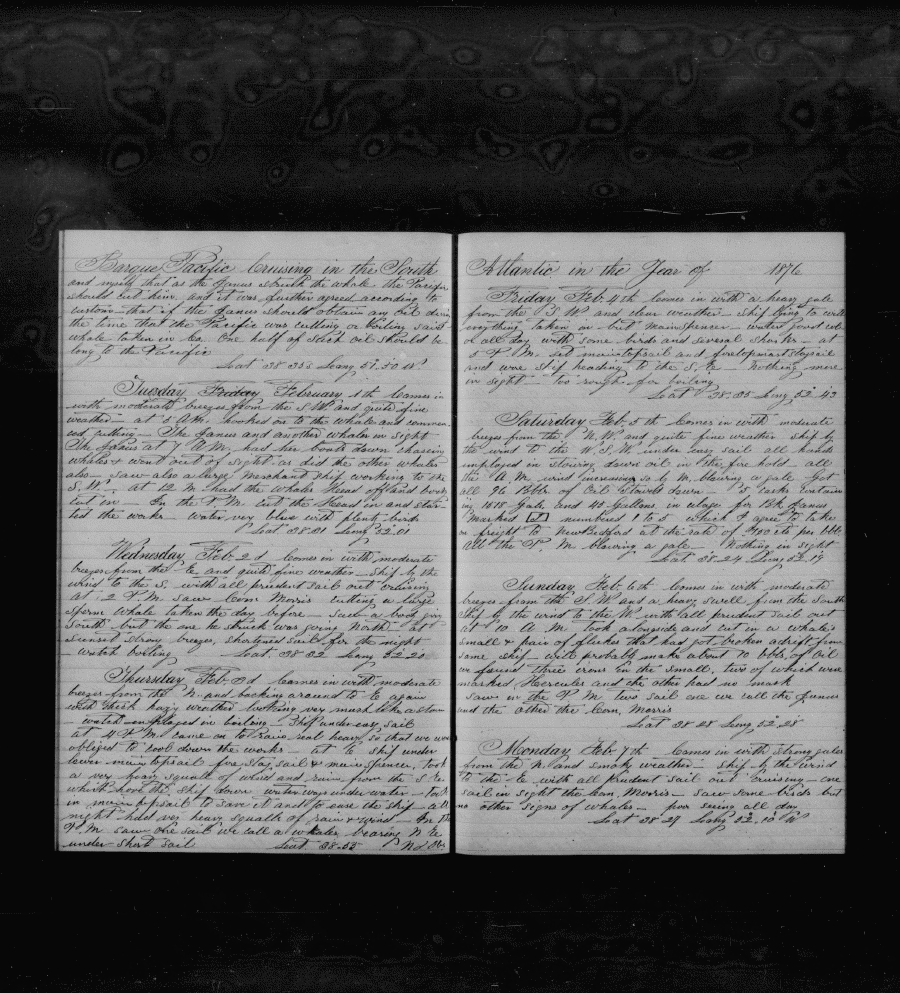 Barque Pacific Cruising in the South
and myself that as the Janus struck the whale the Pacific
should cut him and it was further agreed according to
custom that if the Janus should obtain any oil during
the time that the Pacific was cutting or boiling said
whale taken in Co. One half of Such oil should be
long to the Pacific
Lat 38.35 Long 51.50 W.
Tuesday Friday February 1th Comes in
with moderate breezes from the S.W and quite fine
weather at 5 A.M. hooked on to the whale and commen
ced cutting The Janus and another whaler in sight
The Janus at 7 A M. had her boats down chasing
whales & went out of sight as did the other whaler
also saw also a large Merchant ship working to the
S.W. at 12 M had the whales Head off and body
cut on In the P M cut the Head in and star
ted the works water very blue with plenty birds
Lat 38.31 Long 52.01
Wednesday Feb 2d Comes in with moderate
breezes from the E and quite fine weather Ship by the
wind to the S. with all prudent sail out cruising
at 2 P M. saw Com Morris cutting a large
Sperm Whale taken the day before saw a body going
South but the one he struck was going North at
Sunset strong breezes, shortened sail for the night
watch boiling Lat. 38 32 Long 52.20
Thursday Feb 3d Comes in with moderate
breezes from the N. and backing around to E again
with thick hazy weather looking very much like a storm
watch employed in boiling Ship under easy sail
at 4 P M. came on to rain real heavy so that we were
obliged to cool down the works at 6 ship under
lower main topsail fore stay sail & main spencer, took
a very heavy squall of wind and rain from the S.E.
which hove the ship down water ways under water took
in main topsail to save it and to ease the ship all
night held very heavy squalls of rain & wind In the
P M saw one sail we call a whaler bearing N E
under short sail Lat. 38.55 No Obs
Atlantic in the Year of 1876
Friday Feb. 4th Comes in with a heavy gale
from the S W and clear weather ship lying to with
everything taken in but mainspencer water good col
or all day with some birds and several sharks at
5 P M. set maintopsail and foretopmaststaysail
and wore ship heading to the S.E Nothing more
in sight too rough for boiling
Lat 38.35 Long 52.43
Saturday Feb. 5th Comes in with moderate
breezes from the N.W. and quite fine weather ship by
the wind to the W.S.W. under easy sail all hands
employed in stowing down oil in the fore hold all
the A M. wind increasing so by M. blowing a gale Got
all 96 Bbls of Oil Stowed down 5 casks contain
ing 1618 Gals. and 45 Gallons in ullage for Bk Janus
marked numbered 1 to 5 which I agree to take
on freight to New Bedford at the rate of $ cts per bbl
All the P. M blowing a gale Nothing in sight
Lat. 38.24 Long 52.19
Sunday Feb. 6th Comes in with moderate
breezes from the S.W and a heavy swell from the South
Ship by the wind to the W. with all prudent sail out
at 10 A M. took alongside and cut in a whale's
small & pair of flukes that had got broken adrift from
same ship will probably make about 10 bbls of oil
we found three irons in the small, two of which were
marked Hercules and the other had no mark
saw in the P M two sail one we call the Janus
and the other the Com. Morris
Lat 38 28 Long 52.28
Monday Feb 7th Comes in with strong gales
from the N and smoky weather ship by the wind
to the E with all prudent sail out cruising one
sail in sight the Com. Morris saw some birds but
no other signs of whales poor seeing all day
Lat 38 29 Long 52.10 W